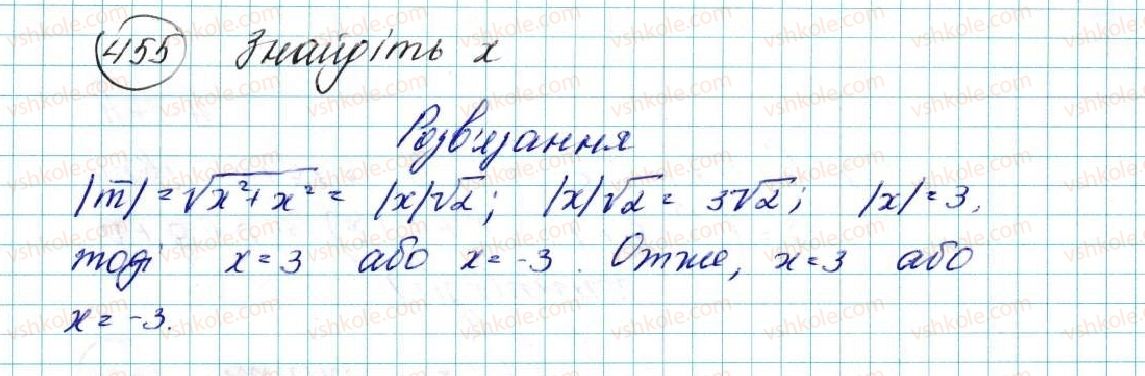 455 Знайдіть x
Розв'язання
|m̅| = √(x² + x²) = |x|√2; |x|√2 = 3√2; |x| = 3,
тоді x = 3 або x = -3. Отже, x = 3 або
x = -3.